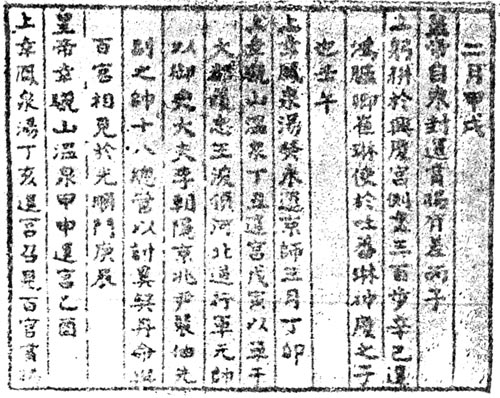 二月甲戌
自東封還賞賜有差丙子
上躬耕於興慶宮側盡三百步辛巳遣
鴻臚卿崔琳使於吐蕃琳神慶之子
也壬午
上幸鳳泉湯癸未還京師三月丁卯
上幸驪山溫泉丁丑還宮戊寅以單于
大都護忠王浚領河北道行軍元帥
以御史大夫李朝隱京兆尹裴伷先
副之帥十八總管以討奚契丹命與
百官相見於光順門庚辰
皇帝幸驪山溫泉甲申還宮乙酉
上幸鳳泉湯丁亥還宮召見百官賞